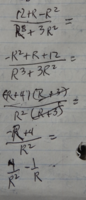 12+R-R² / R³+3R² =
-R²+R+12 / R³+3R² =
(-R+4)(R+3) / R²(R+3) =
-R+4 / R² =
4/R² - 1/R